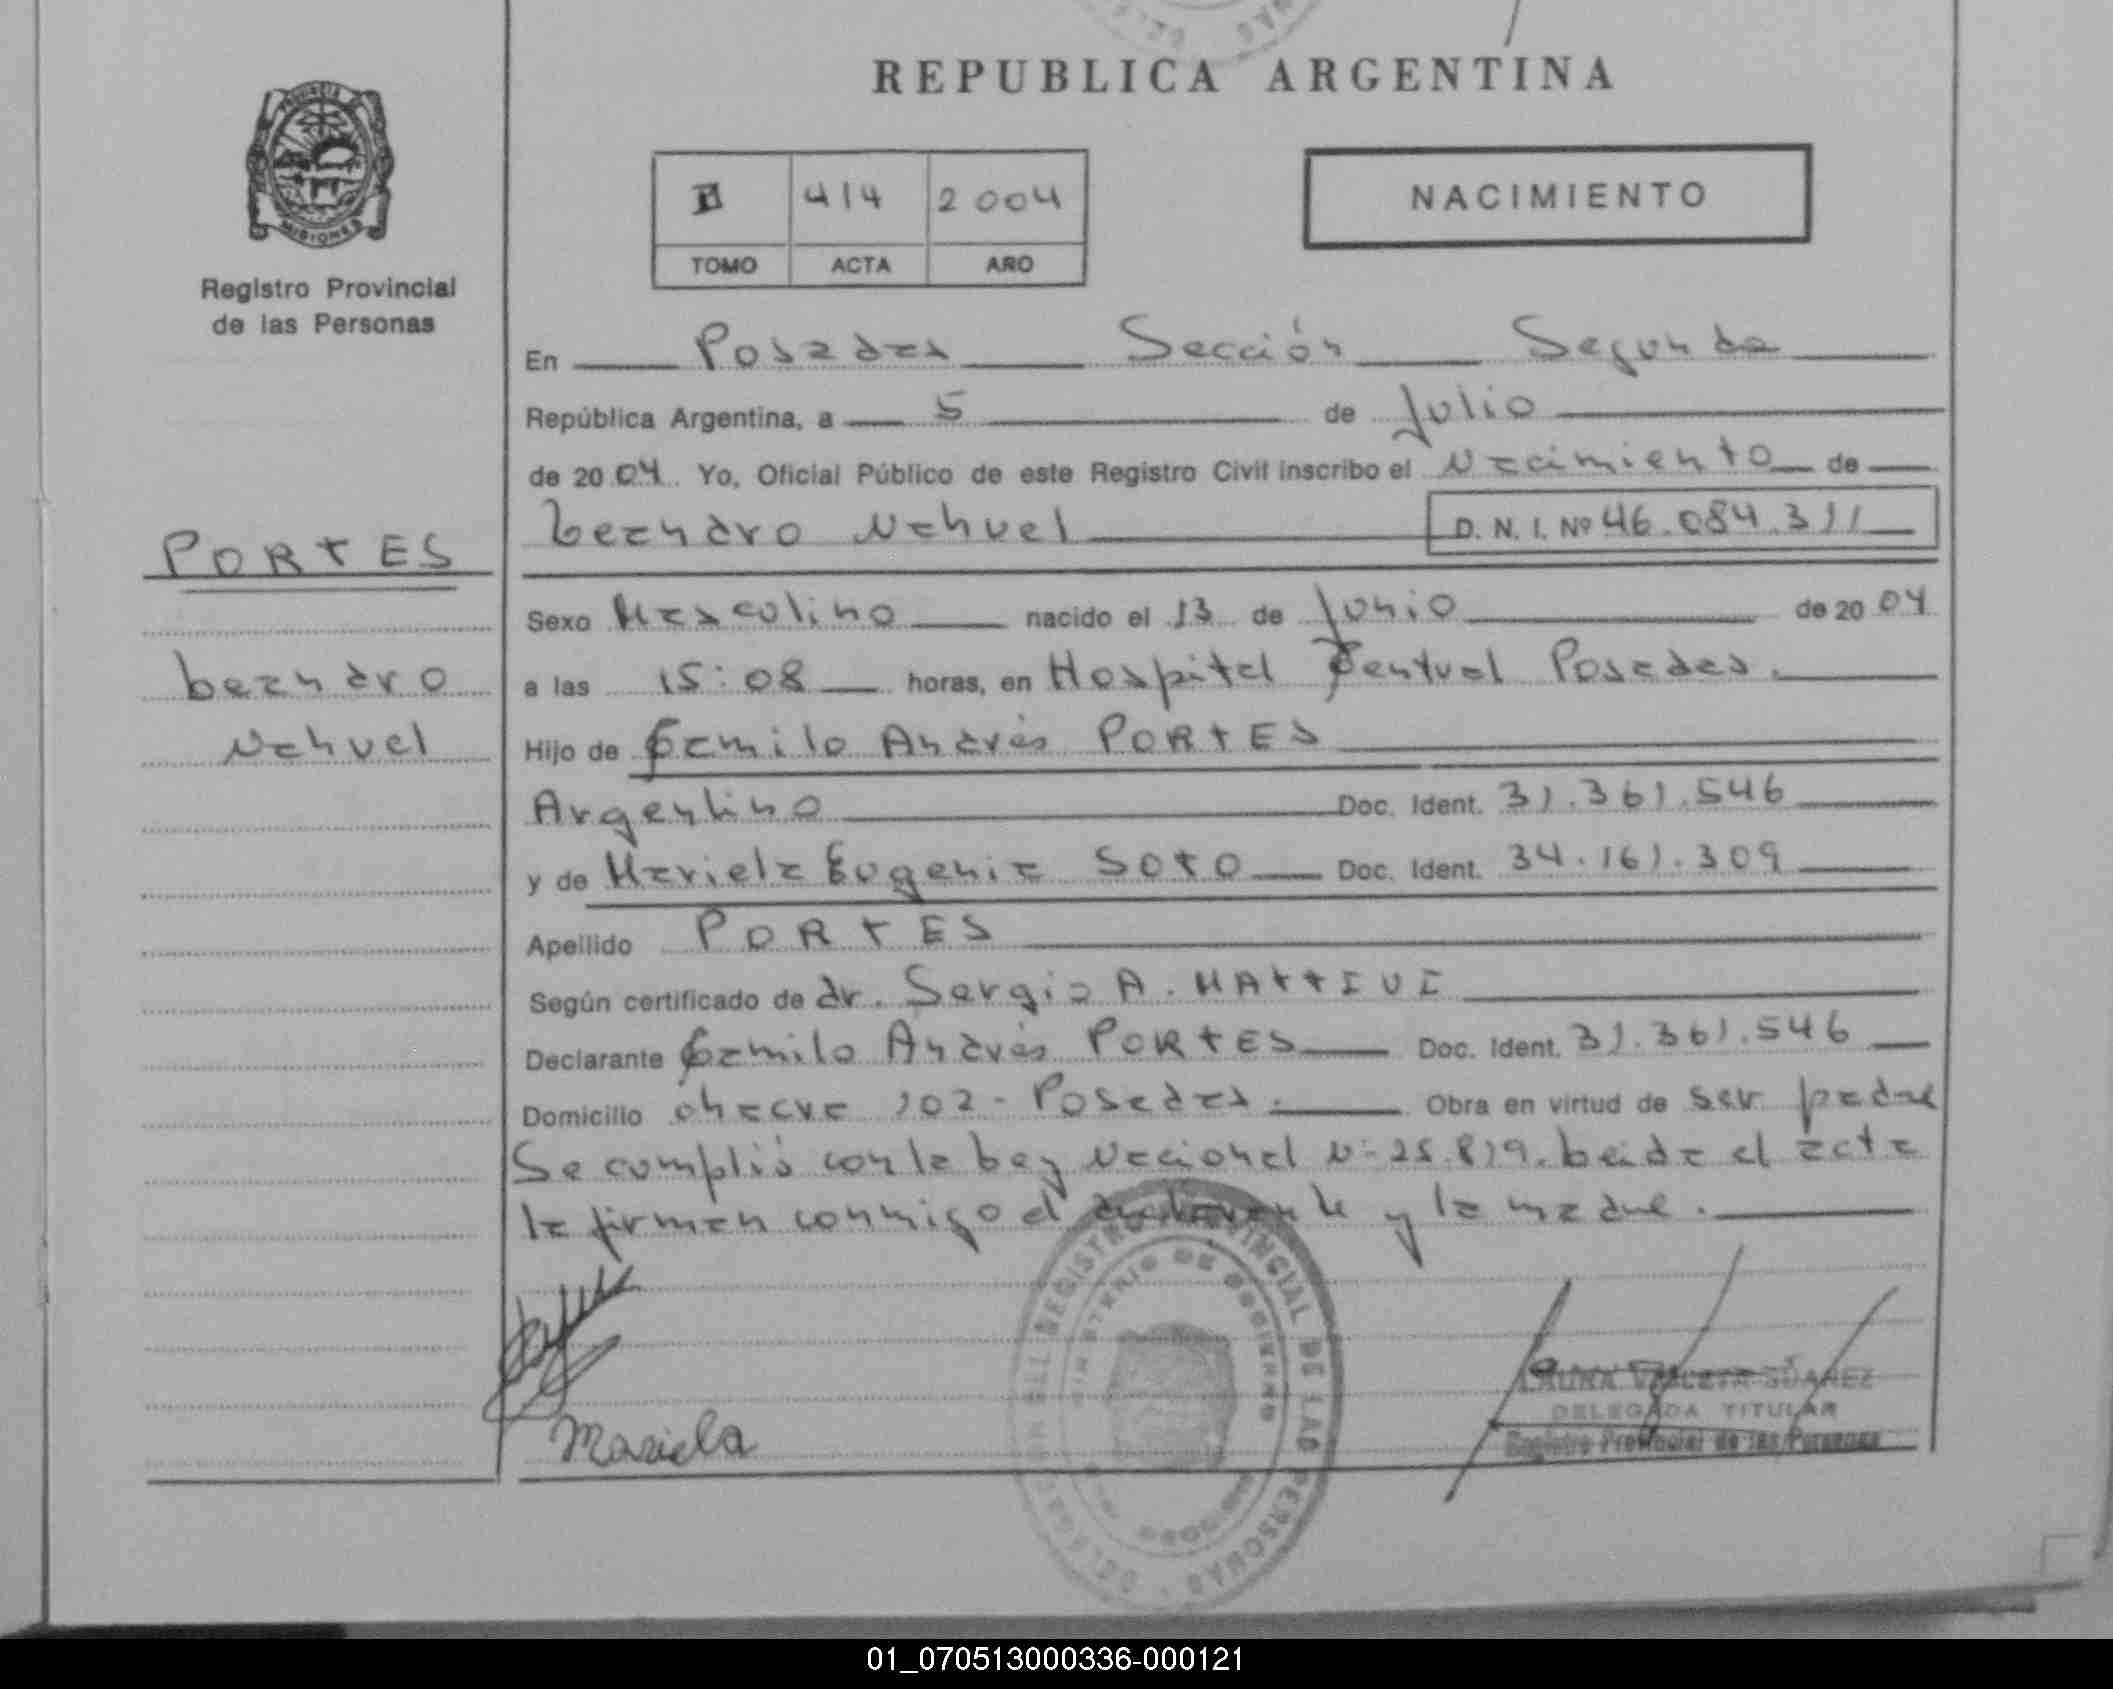 REPUBLICA ARGENTINA
PROVINCIA DE
MISIONES
Registro Provincial
de las Personas
II 414 2004
TOMO ACTA AÑO
NACIMIENTO
En Posadas Sección Segunda
República Argentina, a 5 de Julio
de 2004. Yo, Oficial Público de este Registro Civil inscribo el Nacimiento de
Leandro Nahuel D. N. I. Nº 46.084.311
PORTES
Leandro
Nahuel
Sexo Masculino nacido el 13 de Junio de 2004
a las 15:08 horas, en Hospital Central Posadas.
Hijo de Camilo Andrés PORTES
Argentino Doc. Ident. 31.361.546
y de Mariela Eugenia SOTO Doc. Ident. 34.161.309
Apellido PORTES
Según certificado de dr. Sergio A. MATTIVI
Declarante Camilo Andrés PORTES Doc. Ident. 31.361.546
Domicilio 102 - Posadas. Obra en virtud de ser padre
Se cumplió con la Ley Nacional Nº 25.819. Leida el acta
la firman conmigo el declarante y la madre.
REGISTRO PROVINCIAL DE LAS PERSONAS
MINISTERIO DE GOBIERNO
Mariela
LAURA VIOLETA SUAREZ
DELEGADA TITULAR
Registro Provincial de las Personas
01_070513000336-000121